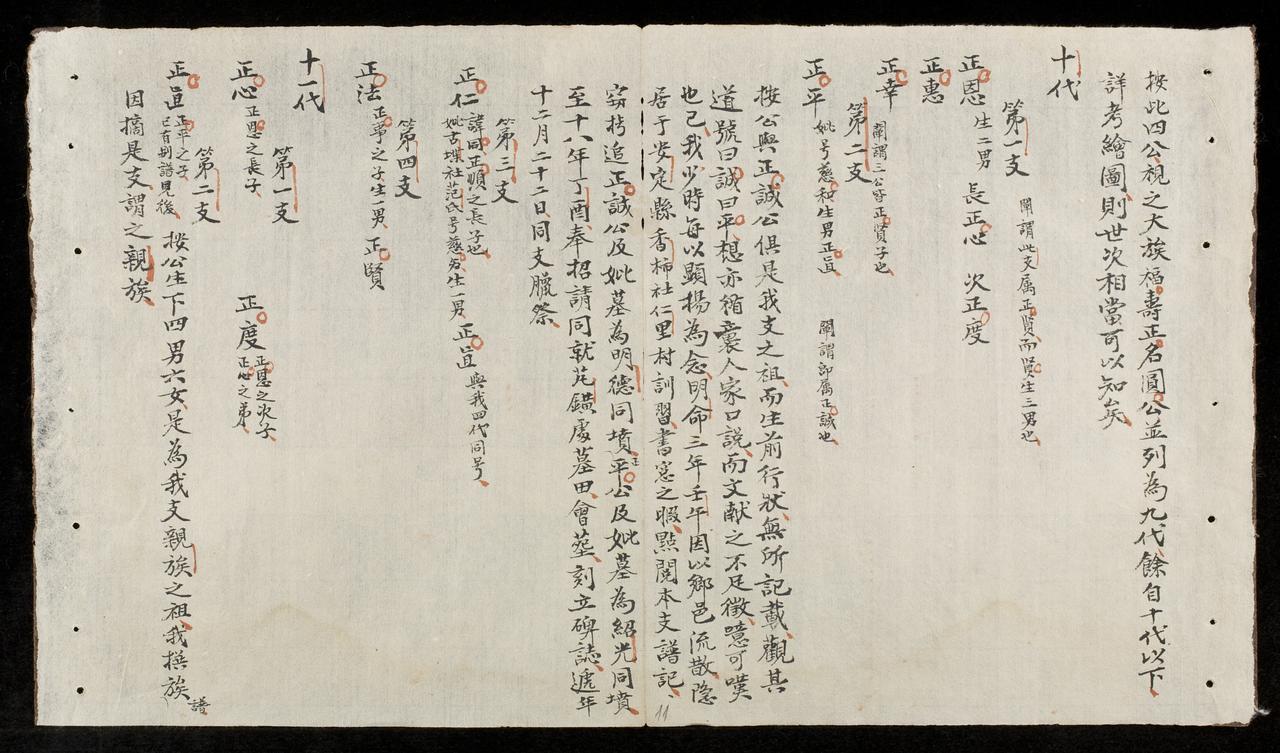 按此四公視之大族福壽正名圓公並列為九代餘自十代以下
詳考繪圖則世次相當可以知矣
十代
第一支 闡謂此支属正賢而賢生三男也
正恩 生二男 長正心 次正度
正惠
正幸 闡謂三公皆正賢子也
第二支
正平 妣号慈和生男正直 闡謂即属正誠也
按公與正誠公俱是我支之祖而生前行狀無所記載觀其
道號曰誠曰平想亦循囊人家口說而文献之不足徵噫可嘆
也已我少時每以顯揚為念明命三年壬午因以鄉邑流散隐
居于安定縣香柿社仁里村訓習書窓之暇點閱本支譜記
竊揹追正誠公及妣墓為明德同墳正平公及妣墓為紹光同墳
至十八年丁酉奉招請同就芁鐄處墓田會塟刻立碑誌遞年
十二月二十二日同支臘祭
第三支
正仁 諱同正順之長子也
妣古堞社范氏号慈 生一男 正直 與我四代同号
第四支
正法 正寧之子生一男 正賢
十一代
第一支
正心 正恩之長子 正度 正恩之次子
正心之弟
第二支
正直 正平之子
已有別譜見後 按公生下四男六女是為我支親族之祖我撰族譜
因摘是支謂之親族
11